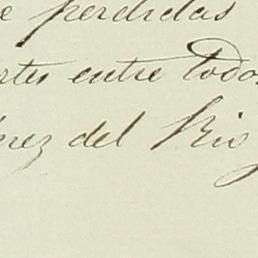 e perdidas
rtes entre todos
nez del Rio